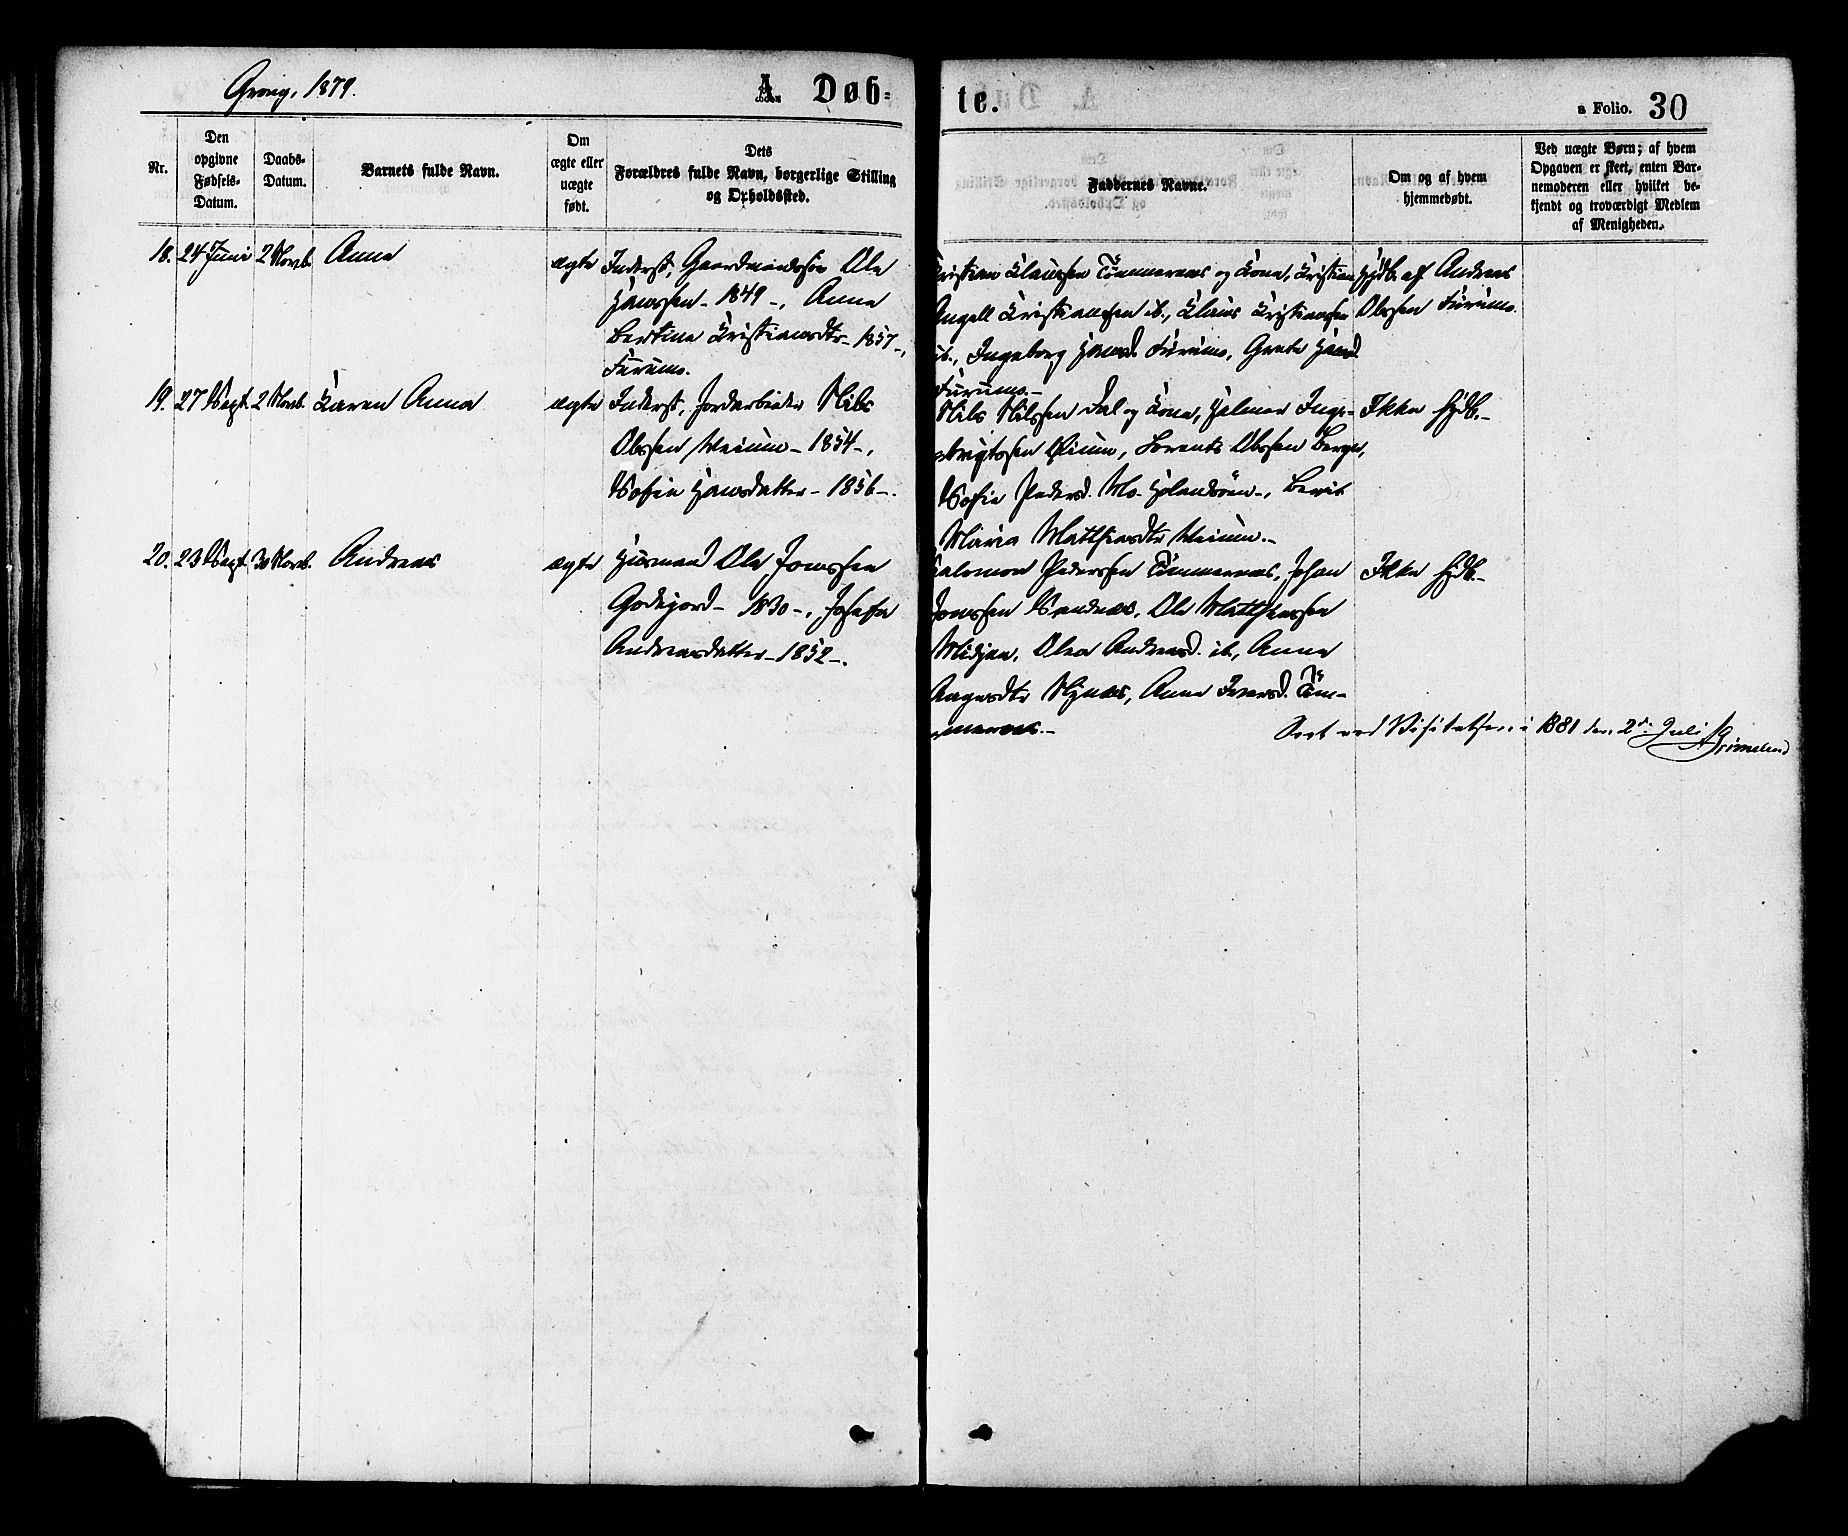 Grong, 1879.
A. Døb-
te.
a Folio. 30
Nr.
Den opgivne Fødsels-Datum.
Daabs-Datum.
Barnets fulde Navn.
Om ægte eller uægte født.
Dets Forældres fulde Navn, borgerlige Stilling og Opholdssted.
Faddernes Navne.
Om og af hvem hjemmedøbt.
Ved uægte Børn; af hvem Opgaven er skeet, enten Barnemoderen eller hvilket bekjendt og troværdigt Medlem af Menigheden.
18. 24 Juni 2 Novb. Anna ægte
Inderst, Gaardmandssøn Ole
Hanssen - 1849 -, Anne
Bertine Kristiansdtr - 1857 -,
Furumo.
Kristian Klaussen Tömmernes og Kone, Kristian
Angell Kristiansen ib., Klaus Kristiansen
ib., Ingeborg Hansd. Furumo, Grete Hansd.
Furumo.-
Hjdb. af Andreas
Olssen Furumo.
19. 27 Sept. 2 Novb. Karen Anna ægte
Inderst, Jordarbeider Nils
Olssen - 1854 -,
Sofie Hansdatter - 1856 -.
Nils Nilssen Dal og Kone, Hjalmar Inge-
brigtssen, Lorents Olssen Berge,
Sofie Pedersd. Mo, Berit
Maria Matthiasdtr
Ikke Hjdb.-
20. 23 Sept. 30 Novb. Andreas ægte
Husmand Ole Jonssen
Godejord - 1830 -, Josefa
Andreasdatter - 1852 -.
Salomon Pederssen Tömmernes, Johan
Jonssen, Ole Matthiassen
Midjen, Olea Andreasd. ib., Anne
Aagesdtr, Anne Iversd. Töm-
mernes.-
Ikke Hjdb.-
Seet ved Visitatsen i 1881 den 2den Juli. Grimelund